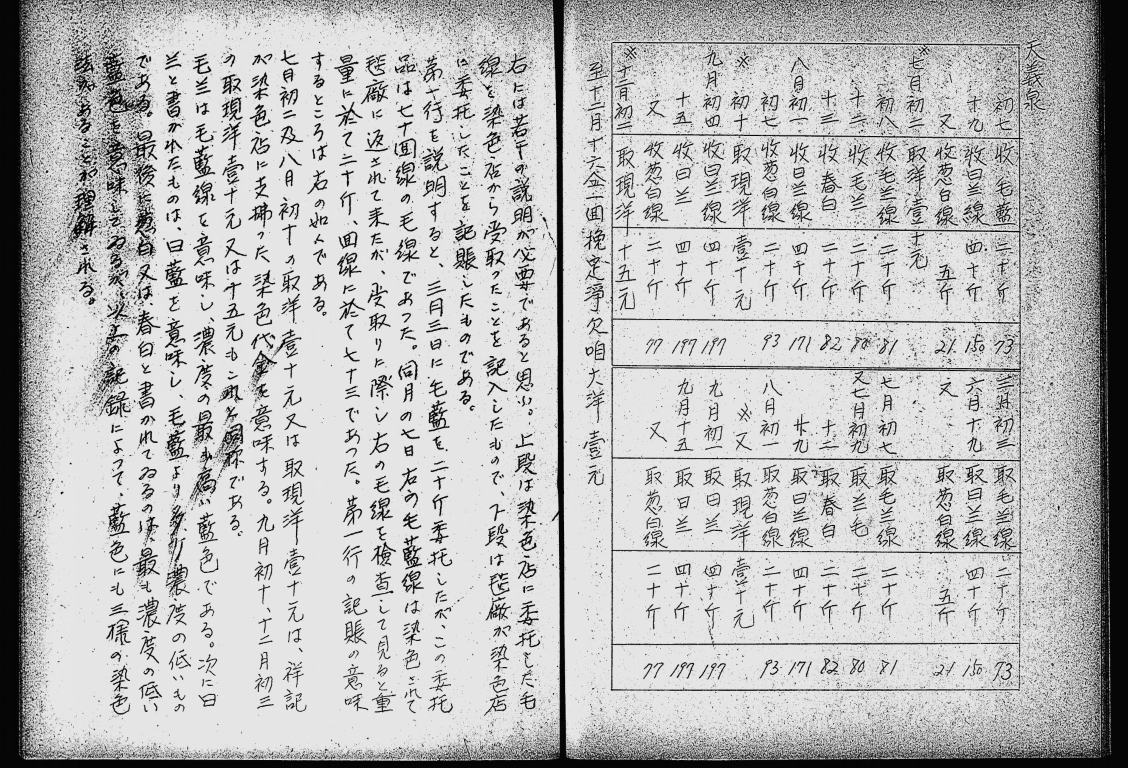 天義泉
初七 收毛藍 二十斤 73
十九 收曰兰線 四十斤 150
又 收葱白線 五斤 21
※七月初二 取現洋壹十元
初八 收毛兰線 二十斤 81
十二 收毛兰 二十斤 80
十三 收春白 二十斤 82
八月初一 收曰兰線 四十斤 171
初七 收葱白線 二十斤 93
※初十 取現洋 壹十元
九月初四 收曰兰線 四十斤 197
十五 收曰兰 四十斤 197
又 收葱白線 二十斤 77
※十二月初三 取現洋 十五元
三月初三 取毛兰線 二十斤 73
六月十九 取曰兰線 四十斤 150
又 取葱白線 五斤 21
七月初七 取毛兰線 二十斤 81
又七月初九 取兰毛 二十斤 80
十二 取春白 二十斤 82
廿九 取曰兰線 四十斤 171
八月初一 取葱白線 二十斤 93
※又 取現洋 壹十元
九月初二 取曰兰 四十斤 197
九月十五 取曰兰 四十斤 197
又 取葱白線 二十斤 77
至十二月十六仝一回挽定淨欠咱大洋壹元
右には若干の説明が必要であると思ふ。上段は染色店に委托した毛
線と染色店から受取ったことを記入したもので、下段は毯廠が染色店
に委托したことを記賬したものである。
第一行を説明すると、三月三日に毛藍を二十斤委托したが、この委托
品は七十回線の毛線であった。同月の七日右の毛藍線は染色されて
毯廠に返されて来たが、受取りに際し右の毛線を検査して見ると重
量に於て二十斤、回線に於て七十三であった。第一行の記賬の意味
するところは右の如くである。
七月初二及八月初十の取洋壹十元又は取現洋壹十元は、祥記
が染色店に支拂った染色代金を意味する。九月初十、十二月初三
の取現洋壹十元又は十五元もこれと同称である。
毛兰は毛藍線を意味し、濃度の最も高い藍色である。次に曰
兰と書かれたものは、曰藍を意味し、毛藍より多少濃度の低いもの
である。最後に葱白又は、春白と書かれてゐるのは、最も濃度の低い
藍色を意味してゐるが、以上の記録によって、藍色にも三様の染色
法があることが理解される。